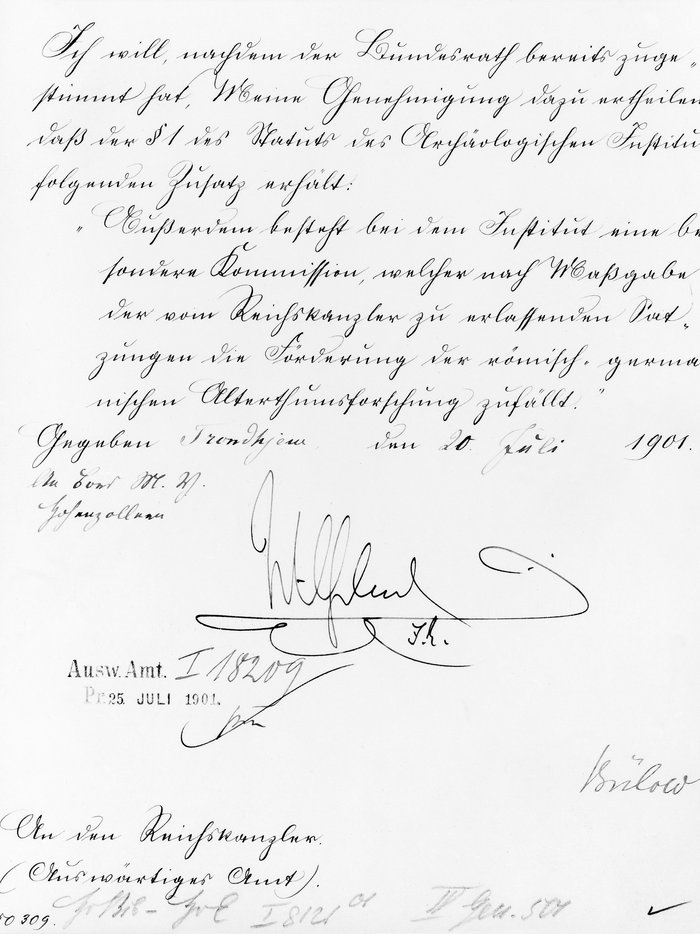 Ich will, nachdem der Bundesrath bereits zuge-
stimmt hat, Meine Genehmigung dazu ertheilen
daß der § 1 des Statuts des Archäologischen Institu
folgenden Zusatz erhält:
„Außerdem besteht bei dem Institut eine be
sondere Kommission, welcher nach Maßgabe
der vom Reichskanzler zu erlassenden Sat-
zungen die Förderung der römisch-germa
nischen Alterthumsforschung zufällt."
Gegeben Trondhjem den 20. Juli 1901.
An Bord M. Y.
Hohenzollern
Wilhelm
I.R.
Ausw. Amt. I 18209
Pr. 25. JULI 1901.
Bülow
An den Reichskanzler.
(Auswärtiges Amt).
50 309.